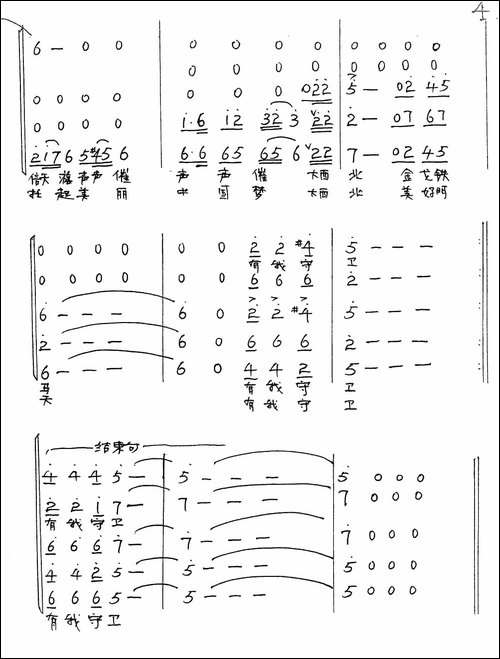 4
6 — 0 0 0 0 0 0 0 0 0 0
0 0 0 0 0 0 0 0
0 0 0 0 0 0 0 022 5 — 02 45
0 0 0 0 1·6 12 32 3 22 2 — 07 67
217 6 5#45 6 6·6 65 65 6 22 7 — 02 45
信天 游 声声 催 声 声 催 大西 北 金 戈铁
托 起 美 丽 中 国 梦 大西 北 美 好阿
0 0 0 0 0 0 2 2 #4 5 — — —
有 我 守 卫
0 0 0 0 0 0 6 6 6 2 — — —
6 — — — 6 0 2 2 #4 5 — — —
2 — — — 6 0 6 6 6 2 — — —
6 — — — 6 0 4 4 2 5 — — —
马 有 我 守 卫
天 有 我 守 卫
结束句
4 4 4 5 — 5 — — — 5 0 0 0
2 2 1 7 — 7 — — — 7 0 0 0
有 我 守 卫
6 6 6 7 — 7 — — — 7 0 0 0
4 4 2 5 — 5 — — — 5 0 0 0
6 6 6 5 — 5 — — — 5 0 0 0
有 我 守 卫